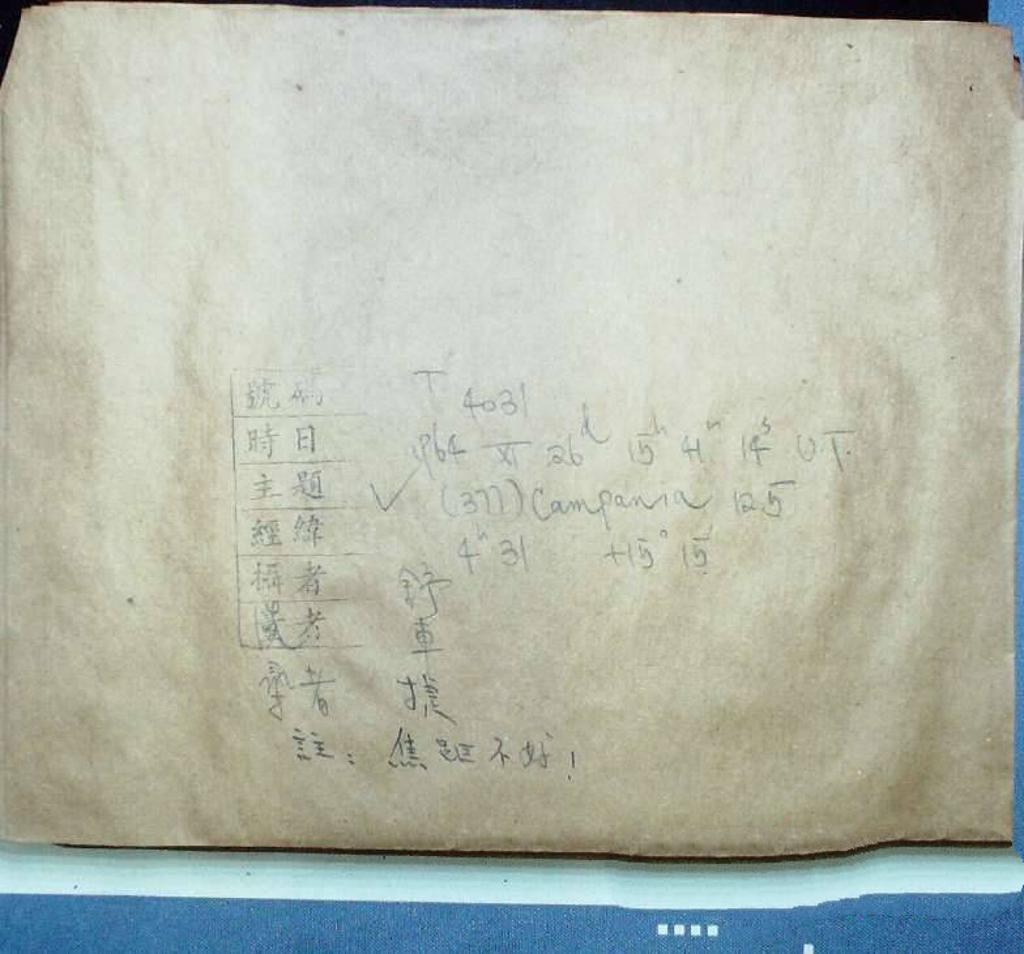 號碼 T 4031
時日 1964 XI 26d 15h 41m 14s U T.
主題 ✓ (377) Campania 12.5
經緯 4h 31 +15° 15'
攝者 舒
者 車
者 捷
註：焦距不好！